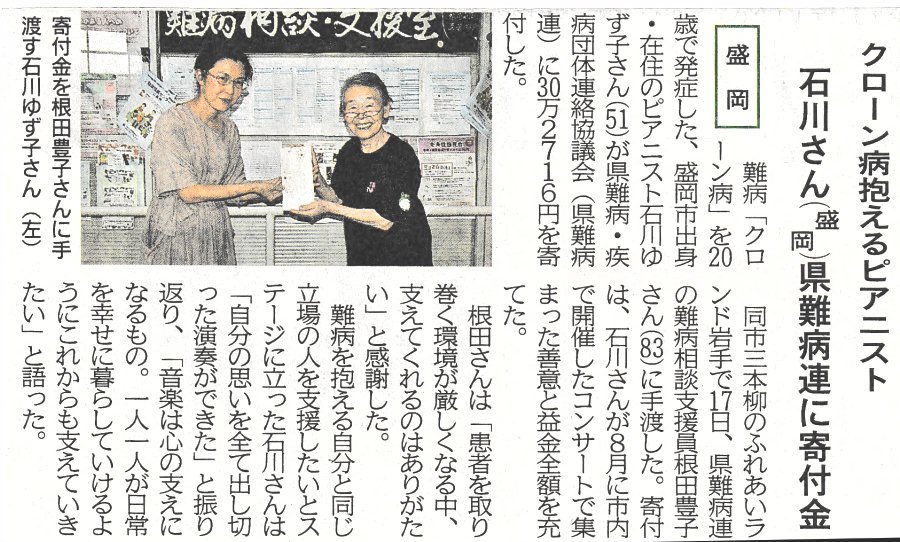 クローン病抱えるピアニスト
石川さん(盛岡)県難病連に寄付金
盛岡
難病「クロ
ーン病」を20
歳で発症した、盛岡市出身
・在住のピアニスト石川ゆ
ず子さん(51)が県難病・疾
病団体連絡協議会(県難病
連)に30万2716円を寄
付した。
同市三本柳のふれあいラ
ンド岩手で17日、県難病連
の難病相談支援員根田豊子
さん(83)に手渡した。寄付
は、石川さんが8月に市内
で開催したコンサートで集
まった善意と益金全額を充
てた。
根田さんは「患者を取り
巻く環境が厳しくなる中、
支えてくれるのはありがた
い」と感謝した。
難病を抱える自分と同じ
立場の人を支援したいとス
テージに立った石川さんは
「自分の思いを全て出し切
った演奏ができた」と振り
返り、「音楽は心の支えに
なるもの。一人一人が日常
を幸せに暮らしていけるよ
うにこれからも支えていき
たい」と語った。
難病相談・支援室
寄付金を根田豊子さんに手
渡す石川ゆず子さん(左)